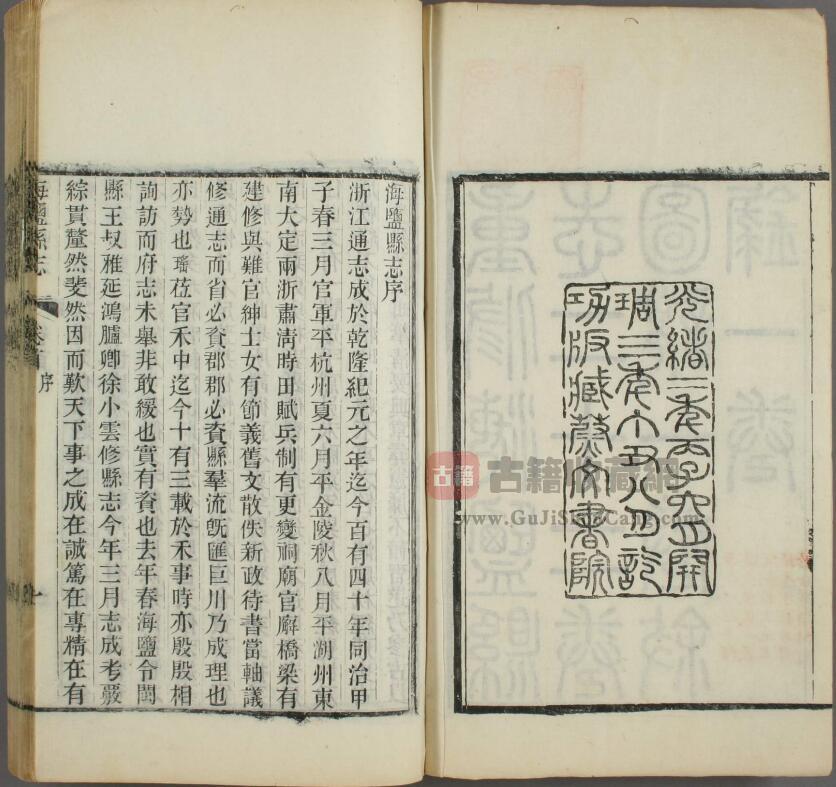 光緒二年丙子六月開
琱三年丁丑八月訖
功版藏蔚文書院
海鹽縣志序
浙江通志成於乾隆紀元之年迄今百有四十年同治甲
子春三月官軍平杭州夏六月平金陵秋八月平湖州東
南大定兩浙肅清時田賦兵制有更變祠廟官廨橋梁有
建修與難官紳士女有節義舊文散佚新政待書當軸議
修通志而省必資郡郡必資縣羣流旣匯巨川乃成理也
亦勢也瑤莅官禾中迄今十有三載於禾事時亦殷殷相
詢訪而府志未舉非敢緩也實有資也去年春海鹽令閩
縣王叔雅延鴻臚卿徐小雲修縣志今年三月志成考覈
綜貫釐然斐然因而歎天下事之成在誠篤在專精在有
海鹽縣志 卷首 序 一
古籍收藏網
www.GuJiShouCang.com